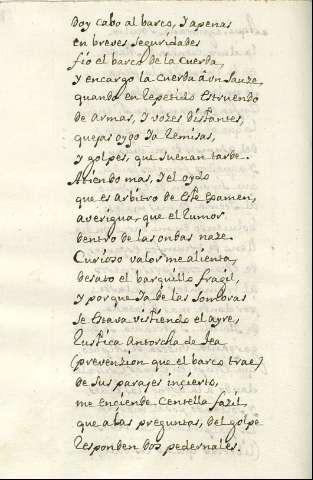 Doy cabo al barco, y apenas
en breves seguridades
fió el barco de la cuerda,
y encargo la cuerda à un sauze,
quando en repetido estruendo
de armas, y vozes distantes,
quejas oygo ya remisas,
y golpes, que suenan tarde.
Atiendo mas, y el oydo
que es arbitro de este examen,
averigua, que el rumor
dentro de las ondas naze.
Curioso valor me alienta,
desato el barquillo fragil,
y porque ya de las sombras
se estava vistiendo el ayre,
rustica antorcha de tea
(prevenzion que el barco trae)
de sus parajes inçierto,
me ençiende çentella fazil,
que a las preguntas, del golpe
responden dos pedernales.